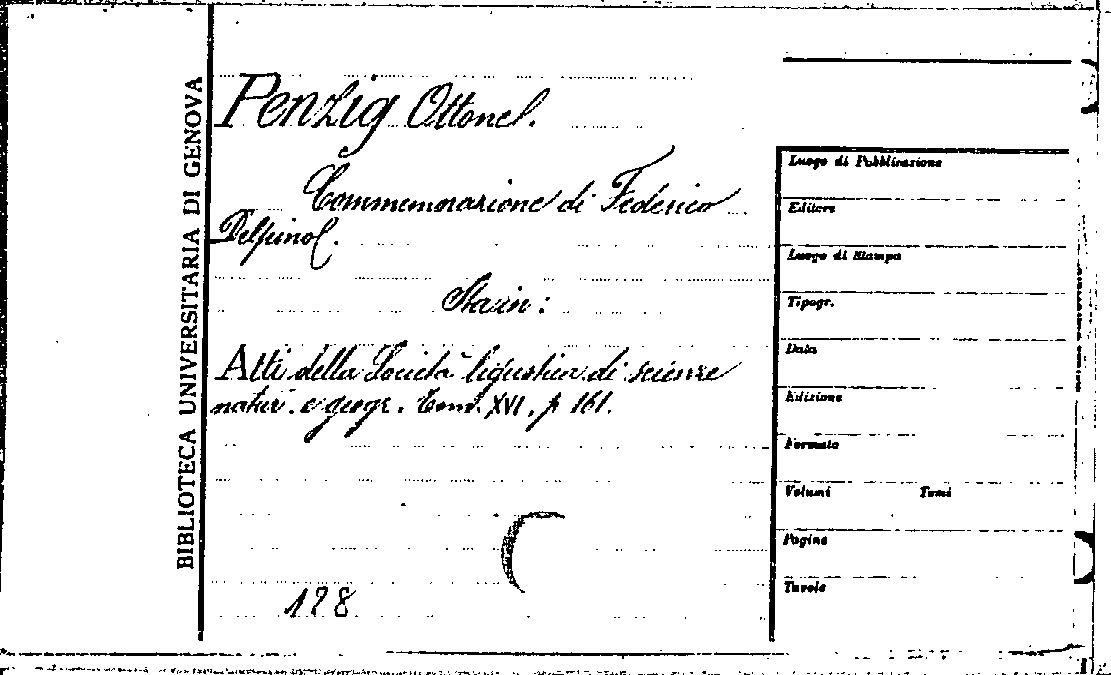 BIBLIOTECA UNIVERSITARIA DI GENOVA
Penzig Ottone.
Commemorazione di Federico
Delpino.
Sta in:
Atti della Società ligustica di scienze
natur. e geogr. Vom. XVI, p 161.
128
Luogo di Pubblicazione
Editore
Luogo di Stampa
Tipogr.
Data
Edizione
Formato
Volumi Tomi
Pagine
Tavole